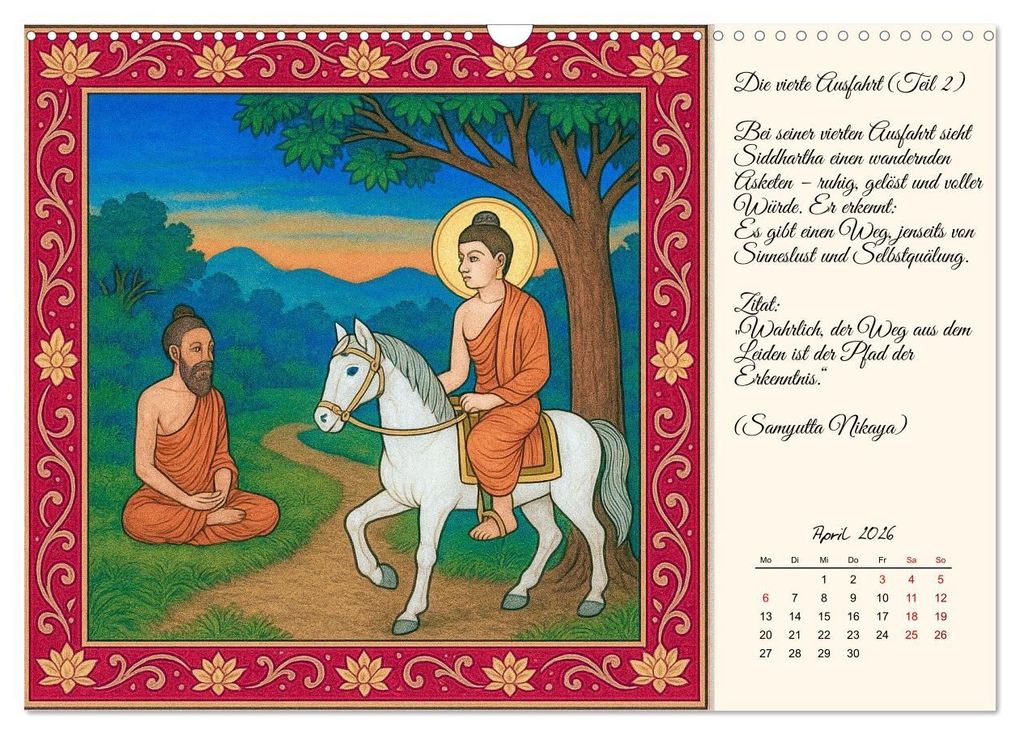 Die vierte Ausfahrt (Teil 2)
Bei seiner vierten Ausfahrt sieht
Siddhartha einen wandernden
Asketen – ruhig, gelöst und voller
Würde. Er erkennt:
Es gibt einen Weg, jenseits von
Sinneslust und Selbstquälung.
Zitat:
„Wahrlich, der Weg aus dem
Leiden ist der Pfad der
Erkenntnis.“
(Samyutta Nikaya)
April 2026
Mo Di Mi Do Fr Sa So
1 2 3 4 5
6 7 8 9 10 11 12
13 14 15 16 17 18 19
20 21 22 23 24 25 26
27 28 29 30